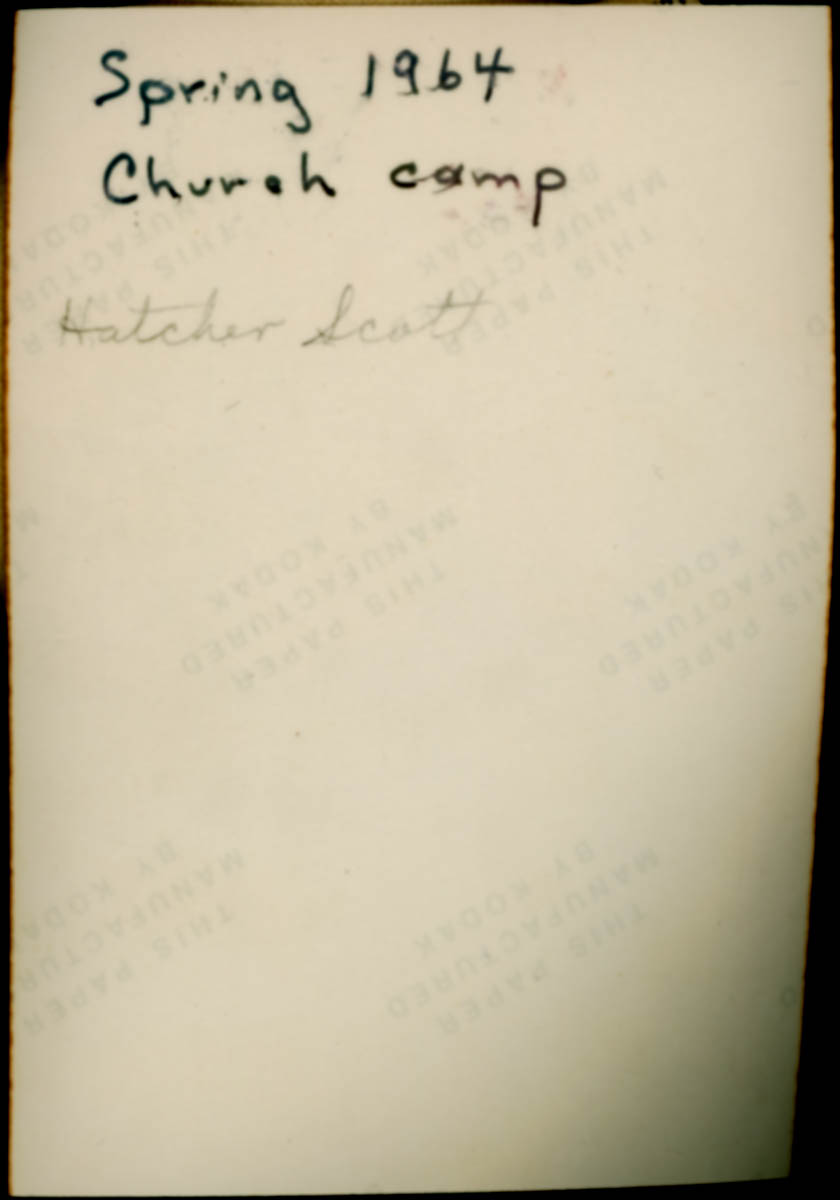 Spring 1964
Church camp
Hatcher Scott
BY KODAK
MANUFACTURED
THIS PAPER
BY KODAK
MANUFACTURED
THIS PAPER
BY KODAK
MANUFACTURED
THIS PAPER
BY KODAK
MANUFACTURED
THIS PAPER
BY KODAK
MANUFACTURED
THIS PAPER
BY KODAK
MANUFACTURED
THIS PAPER